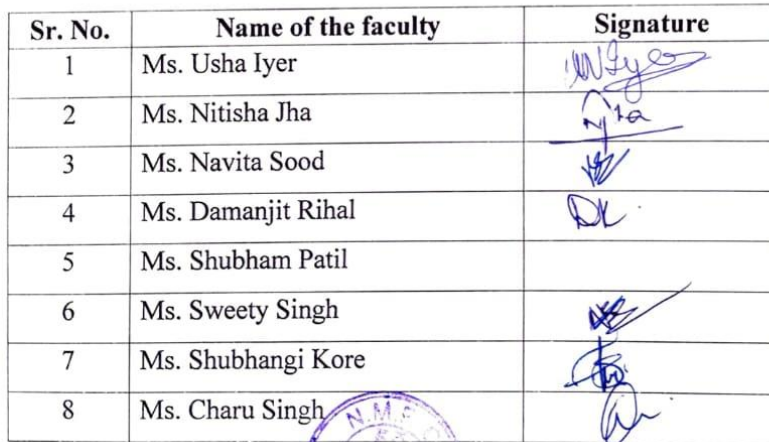 Sr. No. Name of the faculty Signature
1 Ms. Usha Iyer
2 Ms. Nitisha Jha
3 Ms. Navita Sood
4 Ms. Damanjit Rihal
5 Ms. Shubham Patil
6 Ms. Sweety Singh
7 Ms. Shubhangi Kore
8 Ms. Charu Singh
N.M.